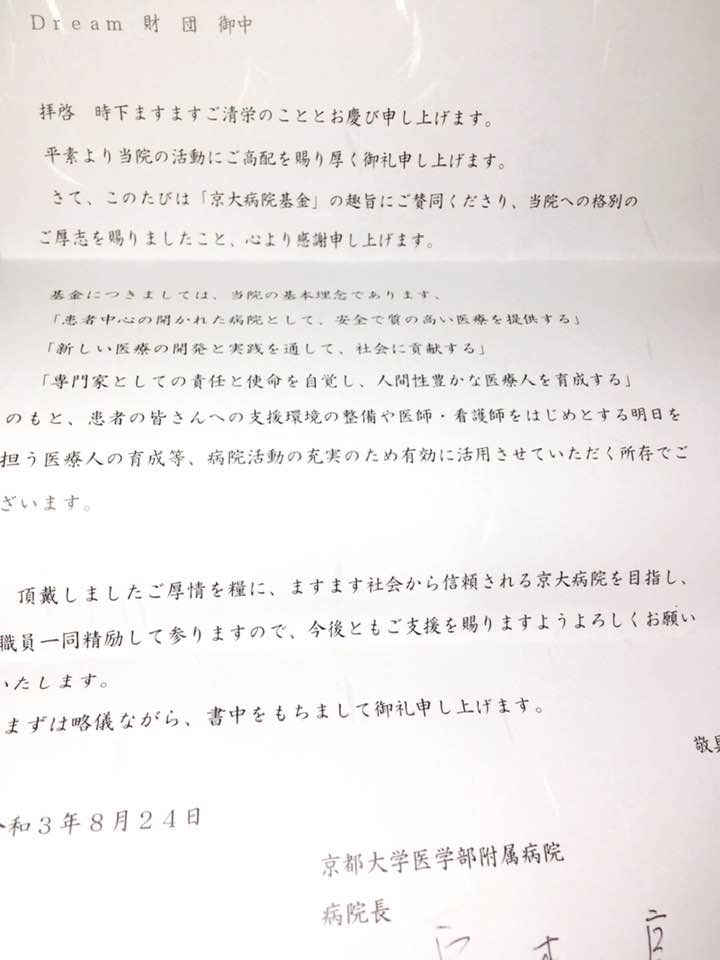 Dream 財 団 御中
拝啓 時下ますますご清栄のこととお慶び申し上げます。
平素より当院の活動にご高配を賜り厚く御礼申し上げます。
さて、このたびは「京大病院基金」の趣旨にご賛同くださり、当院への格別の
ご厚志を賜りましたこと、心より感謝申し上げます。
基金につきましては、当院の基本理念であります、
「患者中心の開かれた病院として、安全で質の高い医療を提供する」
「新しい医療の開発と実践を通して、社会に貢献する」
「専門家としての責任と使命を自覚し、人間性豊かな医療人を育成する」
のもと、患者の皆さんへの支援環境の整備や医師・看護師をはじめとする明日を
担う医療人の育成等、病院活動の充実のため有効に活用させていただく所存でご
ざいます。
頂戴しましたご厚情を糧に、ますます社会から信頼される京大病院を目指し、
職員一同精励して参りますので、今後ともご支援を賜りますようよろしくお願い
いたします。
まずは略儀ながら、書中をもちまして御礼申し上げます。
敬具
令和3年8月24日
京都大学医学部附属病院
病院長